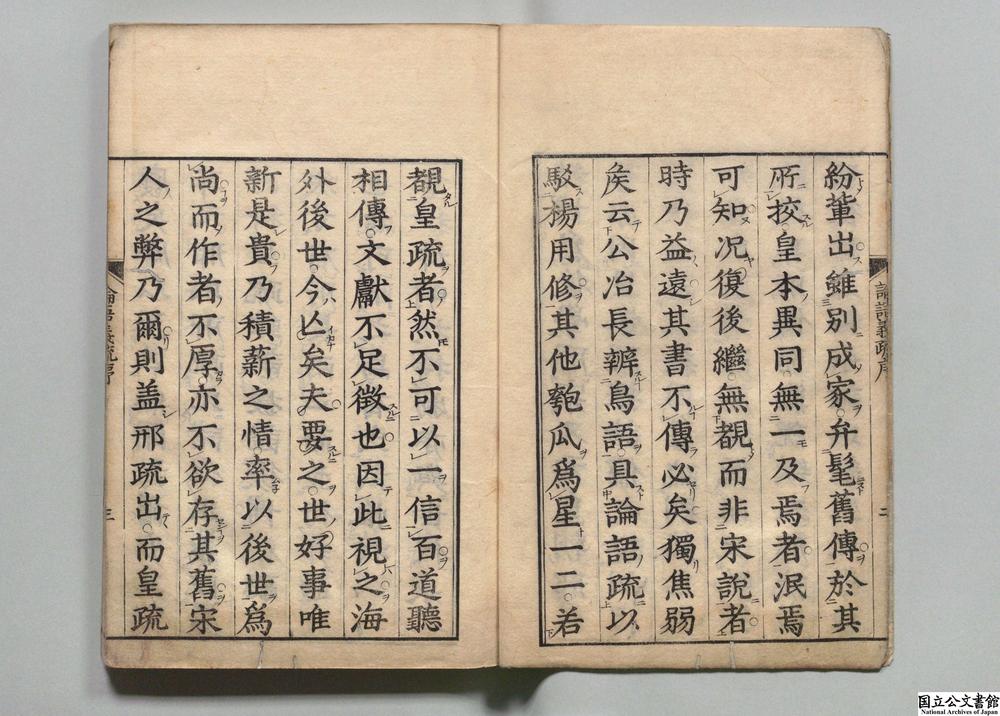 紛輩出雖別成家弁髦舊傳於其
所挍皇本異同無一及焉者泯焉
可知况復後繼無覩而非宋說者
時乃益遠其書不傳必矣獨焦弱
矦云公冶長辨鳥語具論語疏以
駁楊用修其他匏瓜爲星一二若
覩皇疏者然不可以一信百道聽
相傳文獻不足徵也因此視之海
外後世今亾矣夫要之世好事唯
新是貴乃積薪之情率以後世爲
尚而作者不厚亦不欲存其舊宋
人之弊乃爾則盖邢疏出而皇疏
論語義疏序
二
論語義疏序
三
国立公文書館
National Archives of Japan